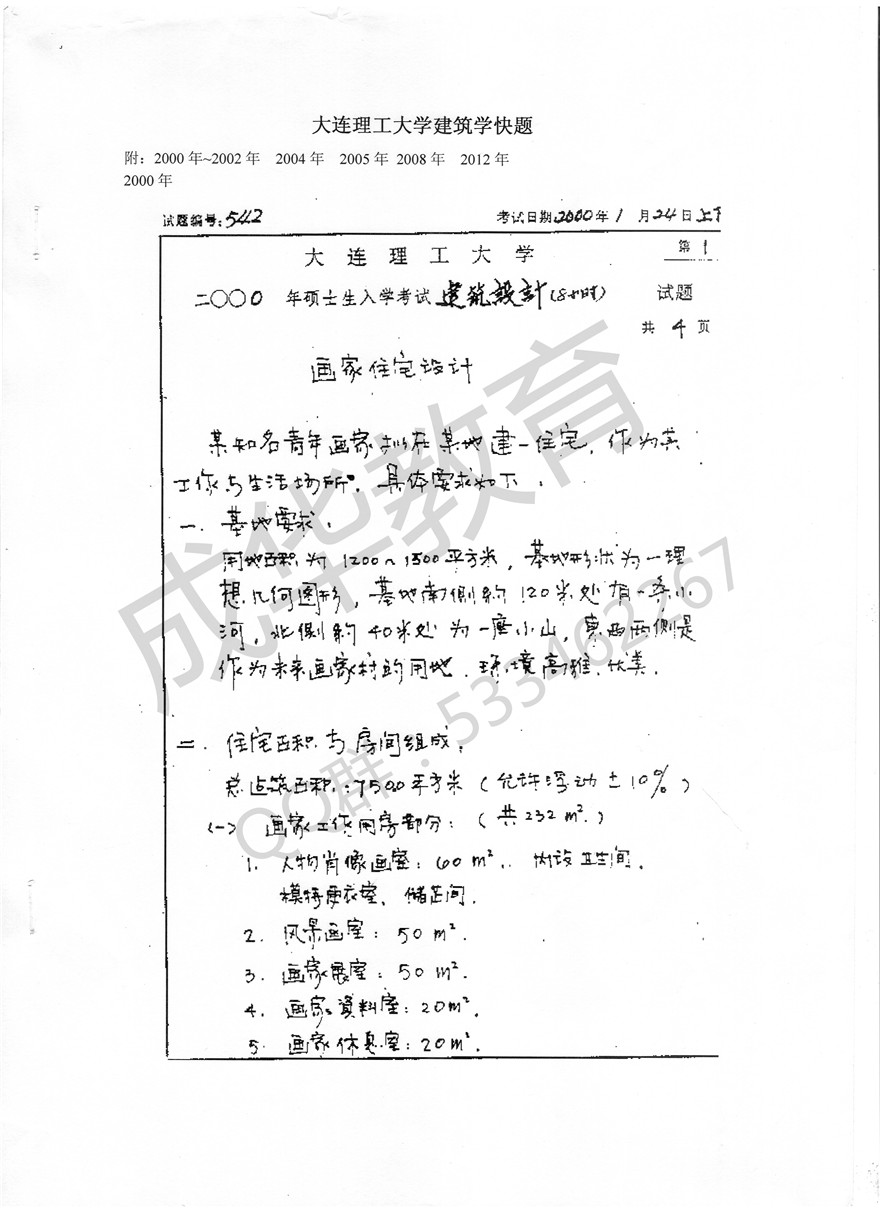 大连理工大学建筑学快题
附：2000 年~2002 年 2004 年 2005 年 2008 年 2012 年
2000 年
试题编号：5412 考试日期2000年1月24日上下
大连理工大学 第1
二〇〇〇年硕士生入学考试建筑設計(8小时) 试题
共 4 页
画家住宅设计
某知名青年画家拟在某地建一住宅，作为其
工作与生活场所。具体要求如下：
一．基地要求：
用地面积为1200~1500平方米，基地形状为一理
想几何图形，基地南侧约120米处有一条小
河，北侧约40米处为一座小山，东西两侧是
作为未来画家村的用地．环境高雅、优美．
二．住宅面积与房间组成：
总建筑面积：500平方米（允许浮动±10%）
〈一〉画家工作用房部分：（共232 m²．）
1．人物肖像画室：60 m²．．内设卫生间．
模特更衣室、储藏间．
2．风景画室：50 m²．
3．画家展室：50 m²．
4．画家資料室：20m²．
5．画家休息室：20m²．
成华教育
QQ群：533462267